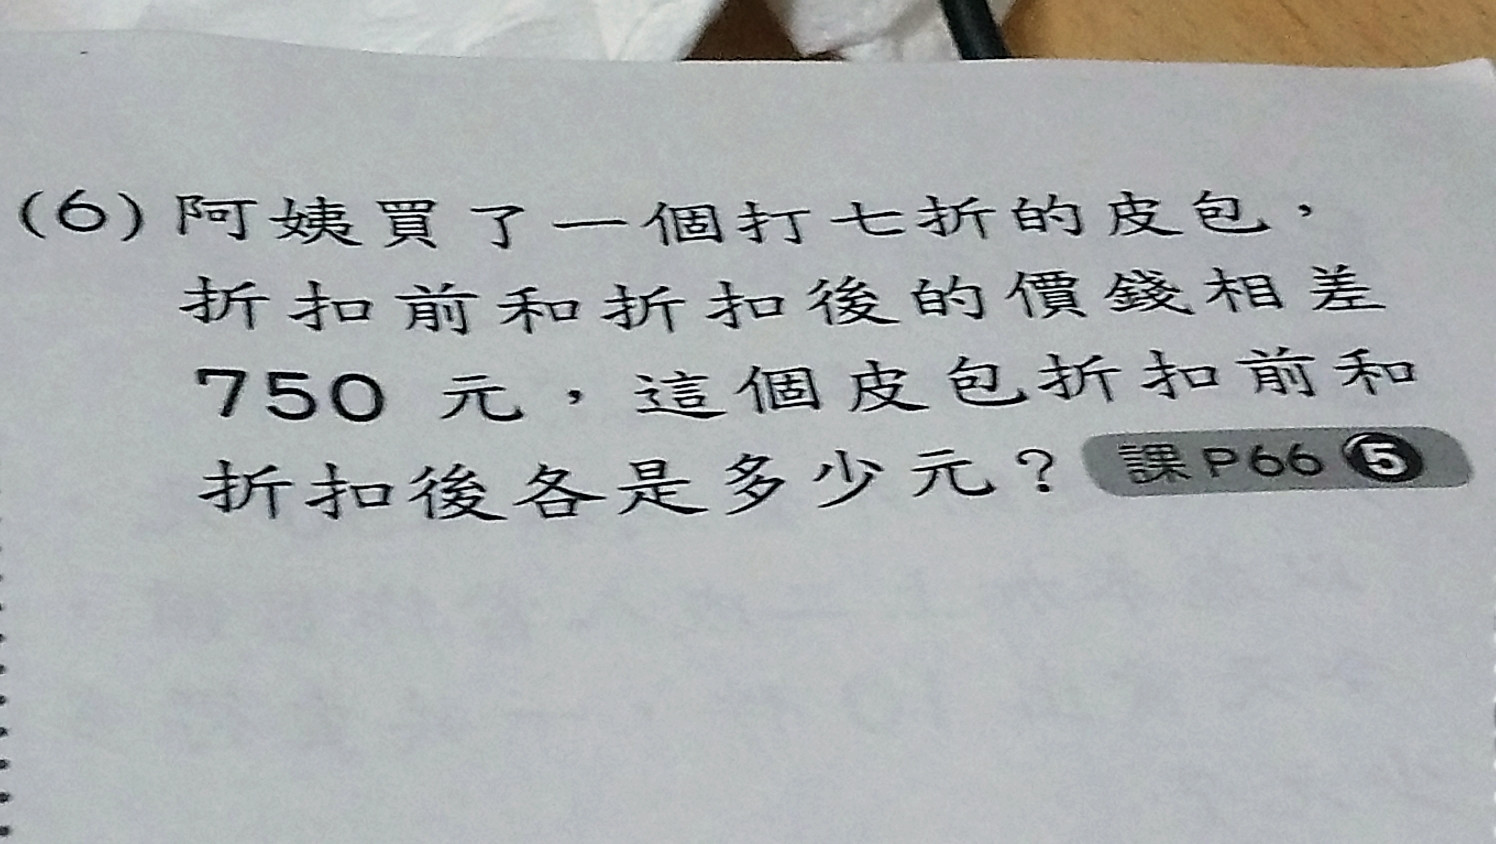 (6)阿姨買了一個打七折的皮包，
折扣前和折扣後的價錢相差
750 元，這個皮包折扣前和
折扣後各是多少元？ 課P66 5